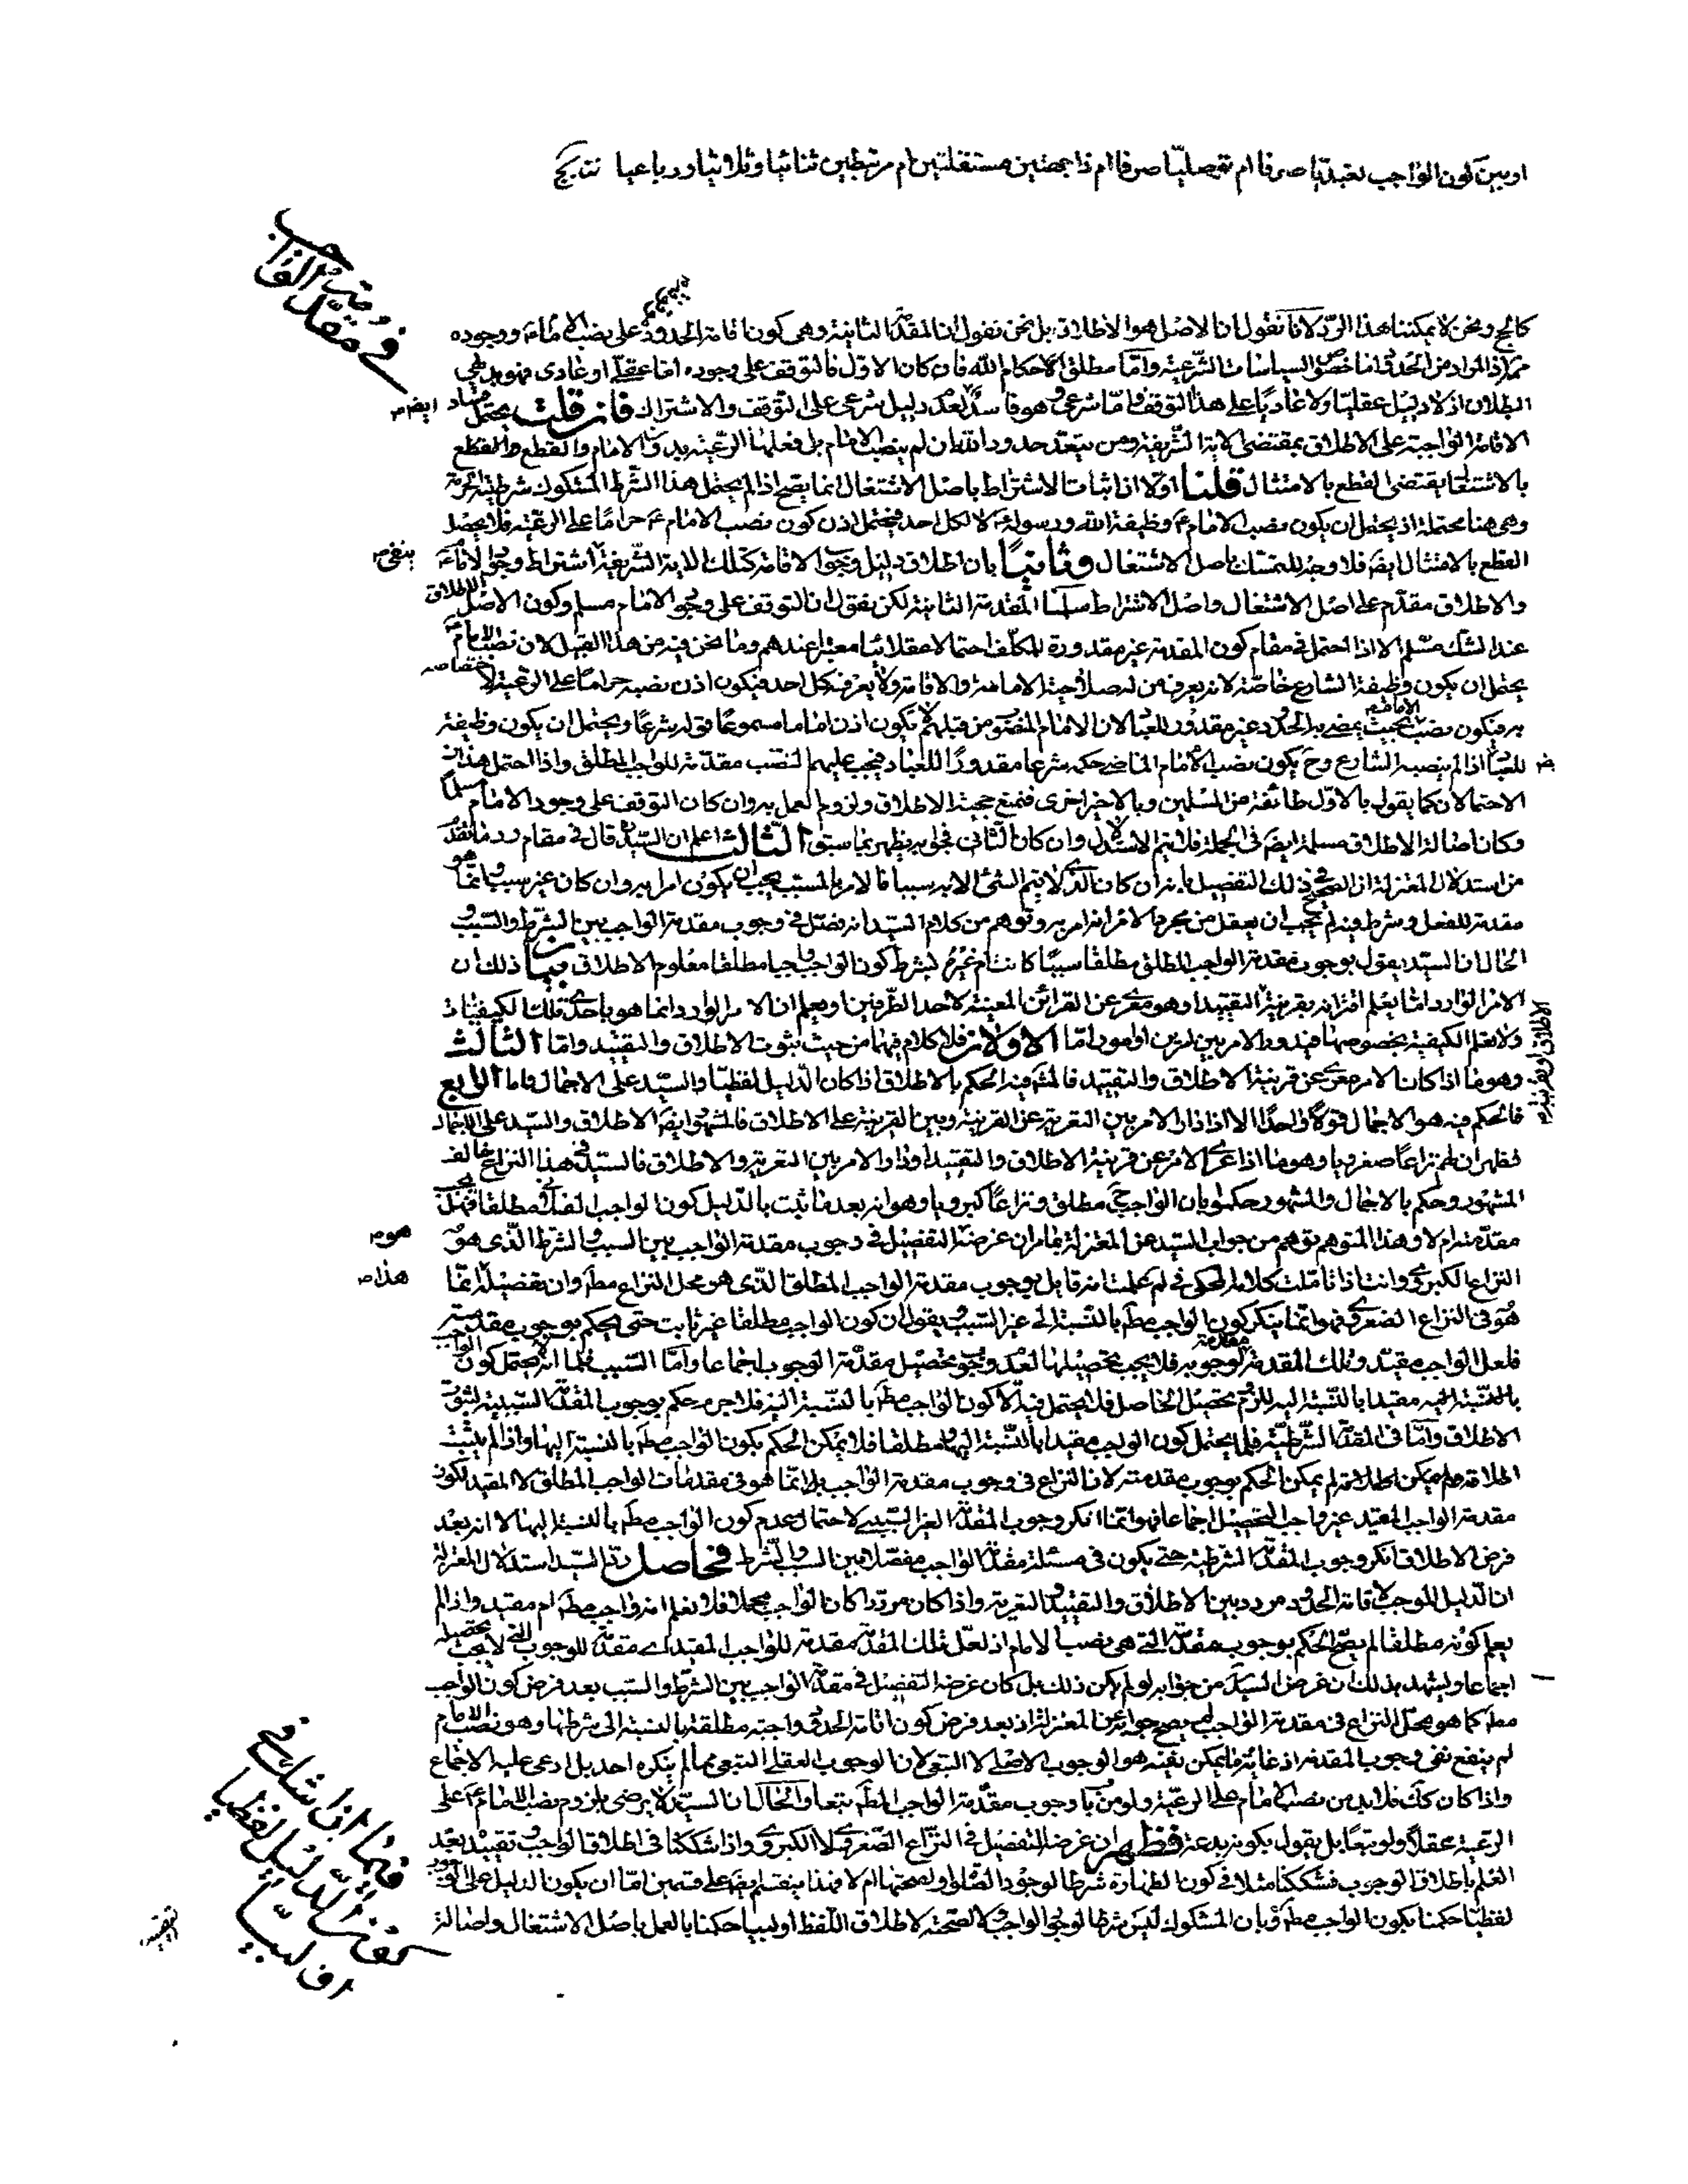 او بين كون الواجب تعبديّا صرفا ام توصليّا صرفا ام ذا جهتين مستقلتين ام مرتبطين ثنائيا وثلاثيا ورباعيا
في مقدمة الواجب
كالحج ونحن لا يمكننا هذا الردّ لانا نقول ان الاصل هو الاطلاق بل نحن نقول ان المقدمة الثانية وهي كون اقامة الحدود على نصب الامام ووجوده
اذ المراد من الحدود اما خصوص السياسات الشرعية واما مطلق الاحكام الله فان كان الاول فالتوقف على وجوده اما عقلا او عادي فهو بديهي
البطلان اذ لا دليل عقليا ولا عاديا على هذا التوقف واما شرعي وهو فاسد لعدم دليل شرعي على التوقف والاشتراك فان قلت يحتمل
الاقامة الواجبة على الاطلاق بمقتضى الاية الشريفة ومن يتعد حدود الله ان لم ينصب الامام بل فعلها الرعية بدون الامام والقطع
بالاشتغال يقتضى القطع بالامتثال قلنا اولا ان اثبات الاشتراط باصل الاشتغال انما يصح اذا لم يحتمل هذا الشرط المشكوك شرطية الحرمة
وهي هنا محتملة اذ يحتمل ان يكون نصب الامام وظيفة الله ورسوله لا لكل احد فيحتمل اذن كون نصب الامام حراما على الرعية فلا يحصل
القطع بالامتثال ايضا فلا وجه للتمسك باصل الاشتغال وثانيا بان اطلاق دليل وجوب الاقامة كتلك الاية الشريفة اشتراط وجوب الاقامة
والاطلاق مقدم على اصل الاشتغال واصل الاشتراط سلمنا المقدمة الثانية لكن نقول ان التوقف على وجود الامام مسلم وكون الاصل الاطلاق
عند الشك مسلم الا اذا احتمل في مقام كون المقدمة غير مقدورة للمكلف احتمالا عقلائيا معتبرا عندهم وما نحن فيه من هذا القبيل لان نصب الامام
يحتمل ان يكون وظيفة الشارع خاصة لانه يعرف من له صلاحية الامامة والاقامة ولا يعرفه كل احد فيكون اذن نصبه حراما على الرعية
فيكون نصب الامام بحيث يمضى به الحدود غير مقدور للعباد لان الامام المنصوب من قبلهم لا يكون اذن اماما مسموعا قوله شرعا ويحتمل ان يكون وظيفة
للعباد اذا لم ينصبه الشارع وح يكون نصب الامام الماضي حكمه شرعا مقدورا للعباد فيجب عليهم النصب مقدمة للواجب المطلق واذا احتمل هذان
الاحتمالان كما يقول بالاول طائفة من المسلمين وبالاخر اخرى فنمنع حجية الاطلاق ولزوم العمل به وان كان التوقف على وجود الامام مسلما
وكان اصالة الاطلاق مسلمة ايضا في الجملة فلا يتم الاستدلال وان كان الثاني فجوابه يظهر مما سبق الثالث اعلم ان السيد قال في مقام رد ما تقدم
من استدلال المعتزلة ان الصحيح في ذلك التفصيل بانه ان كان الذى لا يتم الشئ الا به سببا فالامر بالمسبب يجب ان يكون امرا به وان كان غير سبب وانما هو
مقدمة للفعل وشرط فيه لم يجب ان يعقل من مجرد الامر انه امر به وتوهم من كلام السيد انه يفصل في وجوب مقدمة الواجب بين الشرط والسبب
الحال ان السيد يقول بوجوب مقدمة الواجب المطلق مطلقا سببا كانت ام غيره بشرط كون الواجب واجبا مطلقا معلوم الاطلاق بيان ذلك ان
الامر الوارد اما يعلم اقترانه بقرينة التقييد او هو معرى عن القرائن المعينة لاحد الطرفين او يعلم ان الامر الوارد انما هو باحدى تلك الكيفيات
ولا نعلم الكيفية بخصوصها فيدور الامر بين امرين او امور اما الاولان فلا كلام فيهما من حيث ثبوت الاطلاق والتقييد واما الثالث
وهو ما اذا كان الامر معرى عن قرينة الاطلاق والتقييد فالمشهور فيه الحكم بالاطلاق اذا كان الدليل لفظيا والسيد على الاجمال واما الرابع
فالحكم فيه هو الاجمال قولا واحدا الا اذا دار الامر بين التعرية عن القرينة وبين القرينة على الاطلاق فالمشهور ايضا الاطلاق والسيد على الاجمال
فظهر ان لهم نزاعا صغرويا وهو ما اذا عرى الامر عن قرينة الاطلاق والتقييد او دار الامر بين التعرية والاطلاق فالسيد في هذا النزاع خالف
المشهور وحكم بالاجمال والمشهور حكموا بان الواجب ح مطلق ونزاعا كبرويا وهو انه بعد ما ثبت بالدليل كون الواجب مطلقا فهل يجب
مقدمته ام لا وهذا المتوهم توهم من جواب السيد عن المعتزلة بما مر ان غرضه التفصيل في وجوب مقدمة الواجب بين السبب والشرط الذى هو
النزاع الكبروى وانت اذا تاملت كلامه المحكى علمت انه قايل بوجوب مقدمة الواجب المطلق الذى هو محل النزاع مط وان تفصيله انما
هو في النزاع الصغروى فهو انما ينكر كون الواجب مط بالنسبة الى غير السبب ويقول ان كون الواجب مطلقا غير ثابت حتى يحكم بوجوب مقدمته
فلعل الواجب مقيد وتلك المقدمة مقدمة لوجوبه فلا يجب تحصيلها لعدم وجوب تحصيل مقدمة الوجوب اجماعا واما السبب فلما لم يحتمل كون الواجب
بالنسبة اليه مقيدا للزوم تحصيل الحاصل فلا يحتمل فيه الا كون الواجب مط بالنسبة اليه فلا جرم حكم بوجوب المقدمة السببية لثبوت
الاطلاق واما في المقدمة الشرطية فلما يحتمل كون الواجب مقيدا بالنسبة اليها ومطلقا فلا يمكن الحكم بكون الواجب مط بالنسبة اليها واذا لم يثبت
اطلاقه لم يمكن الحكم بوجوب مقدمته لان النزاع في وجوب مقدمة الواجب بل انما هو في مقدمات الواجب المطلق لا المقيد لكون
مقدمة الواجب المقيد غير واجب التحصيل اجماعا فهو انما انكر وجوب المقدمة الغير السببية لاحتمال عدم كون الواجب مط بالنسبة اليها لا انه بعد
فرض الاطلاق انكر وجوب المقدمة الشرطية حتى يكون في مسئلة مقدمة الواجب مفصلا بين السبب والشرط فحاصل رد السيد استدلال المعتزلة
ان الدليل الموجب لاقامة الحدود مردد بين الاطلاق والتقييد والتعرية واذا كان مرددا كان الواجب مجملا فلا نعلم انه واجب مط ام مقيد واذا لم
يعلم كونه مطلقا لم يصح الحكم بوجوب مقدمته التي هي نصب الامام اذ لعل تلك المقدمة مقدمة للواجب المقيد اى مقدمة للوجوب التي لا يجب تحصيله
اجماعا ويشهد بذلك ان غرض السيد من جوابه لو لم يكن ذلك بل كان غرضه التفصيل في مقدمة الواجب بين الشرط والسبب بعد فرض كون الواجب
مط كما هو محل النزاع في مقدمة الواجب لم يصح جوابه عن المعتزلة اذ بعد فرض كون اقامة الحدود واجبة مطلقة بالنسبة الى شرطها وهو نصب الامام
لم ينفع نفى وجوب المقدمة اذ غاية ما يمكن نفيه هو الوجوب الاصلى لا التبعى لان الوجوب العقلى التبعى مما لم ينكره احد بل ادعى عليه الاجماع
واذا كان كك فلا بد من نصب الامام على الرعية ولو من باب وجوب مقدمة الواجب المط تبعا والحال ان السيد لا يرضى بلزوم نصب الامام على
الرعية عقلا ولو تبعا بل يقول بكونه بدعة فظهر ان غرضه التفصيل في النزاع الصغروى لا الكبروى واذا شككنا في اطلاق الواجب وتقييده بعد
العلم باطلاق الوجوب فشككنا مثلا في كون الطهارة شرطا لوجود الصلوة او لصحتها ام لا فهذا ينقسم ايضا على قسمين اما ان يكون الدليل على الوجوب
لفظيا حكمنا بكون الواجب مط وبان المشكوك ليس شرطا لوجود الواجب ولا لصحته لاطلاق اللفظ او لبيا حكمنا بالعمل باصل الاشتغال واصالة
ايضا
هذا
الاطلاق او بقرينة
فيما اذا شك في
كون الدليل لفظيا
او لبيّا